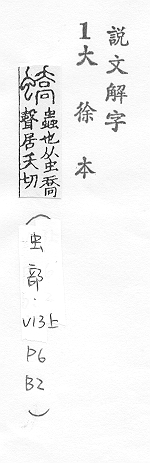 説文解字
1大徐本
蟜蟲也从虫喬聲居夭切
(虫部.V13上P6B2)